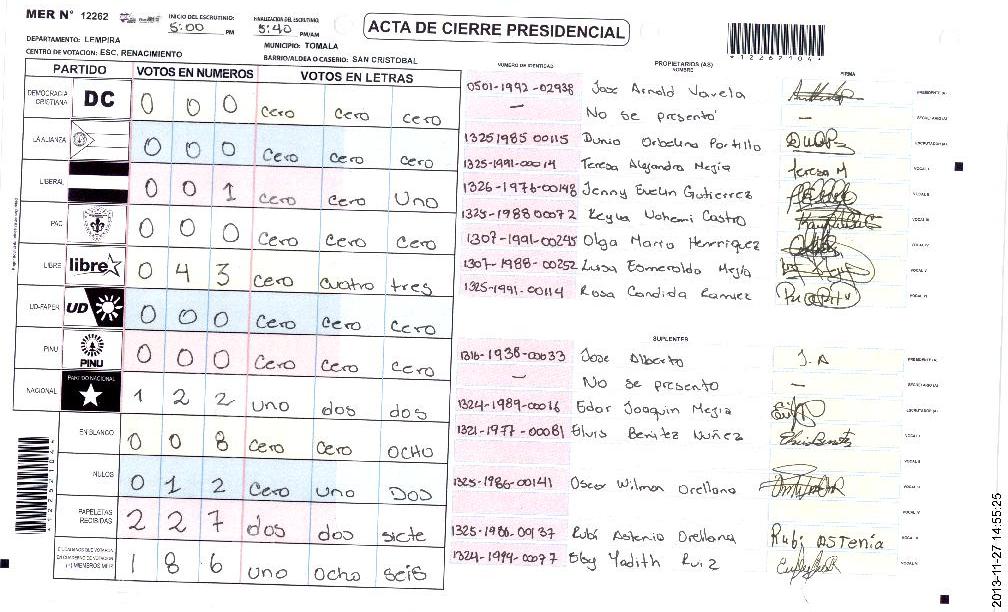 MER N° 12262
INICIO DEL ESCRUTINIO: 5:00 PM
FINALIZACION DEL ESCRUTINIO: 5:40 PM/AM
ACTA DE CIERRE PRESIDENCIAL
DEPARTAMENTO: LEMPIRA
MUNICIPIO: TOMALA
CENTRO DE VOTACION: ESC. RENACIMIENTO
BARRIO/ALDEA O CASERIO: SAN CRISTOBAL
PARTIDO VOTOS EN NUMEROS VOTOS EN LETRAS
DEMOCRACIA CRISTIANA DC 0 0 0 cero cero cero
LA ALIANZA 0 0 0 cero cero cero
LIBERAL 0 0 1 cero cero Uno
PAC 0 0 0 cero cero cero
LIBRE libre 0 4 3 cero cuatro tres
UD-FAPER UD 0 0 0 cero cero cero
PINU PINU 0 0 0 cero cero cero
NACIONAL PARTIDO NACIONAL 1 2 2 uno dos dos
EN BLANCO 0 0 8 cero cero OCHO
NULOS 0 1 2 cero uno Dos
PAPELETAS RECIBIDAS 2 2 7 dos dos siete
1 8 6 uno ocho seis
NUMERO DE IDENTIDAD PROPIETARIOS (AS) NOMBRE FIRMA
0501-1992-02938 Jose Arnold Varela PRESIDENTE (A)
— No se presento — SECRETARIO (A)
1325 1985 00115 Dunia Orbelina Portillo ESCRUTADOR (A)
1325-1991-00014 Teresa Alejandra Mejia Teresa M VOCAL I
1326-1976-00148 Jenny Evelin Gutierrez VOCAL II
1325-1988 00072 Keyla Nohemi Castro VOCAL III
1307-1991-00245 Olga Marro Henriquez VOCAL IV
1307-1988-00252 Luisa Esmeralda Mejia VOCAL V
1325-1991-00114 Rosa Candida Ramirez VOCAL VI
SUPLENTES
1316-1938-00033 Jose Alberto J. A PRESIDENTE (A)
— No se presento — SECRETARIO (A)
1324-1989-00016 Edar Joaquin Mejia ESCRUTADOR (A)
1321-1977-00081 Elvis Benitez Nuñez Elvis Benitez VOCAL I
VOCAL II
1325-1986-00141 Oscar Wilman Orellana VOCAL III
VOCAL IV
1325-1986-00137 Rubi Astenia Orellana Rubi ASTENIA VOCAL V
1324-1994-00077 Elsy Yadith Ruiz VOCAL VI
2013-11-27 14:55:25